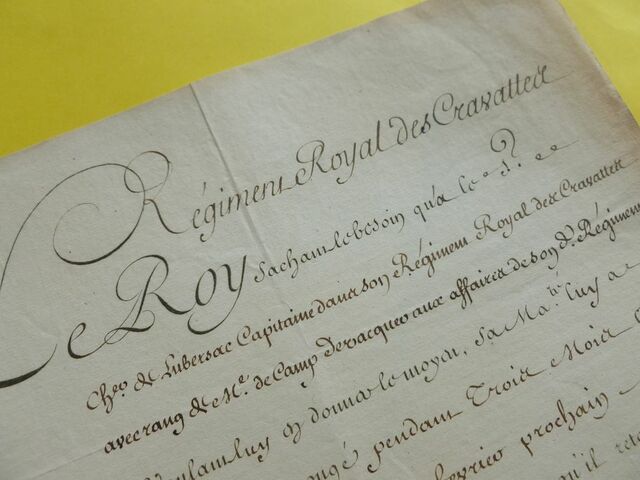 Régiment Royal des Cravattes
Le Roy sachant le besoin qu'a le S.r
Cher. de Lubersac Capitaine dans son Régiment Royal des Cravattes
avec rang de Me. de Camp De vacquer aux affaires de son d. Régiment
luy en donner le moyen, Sa Ma.té luy a
pendant Trois Mois
prochain
qu'il